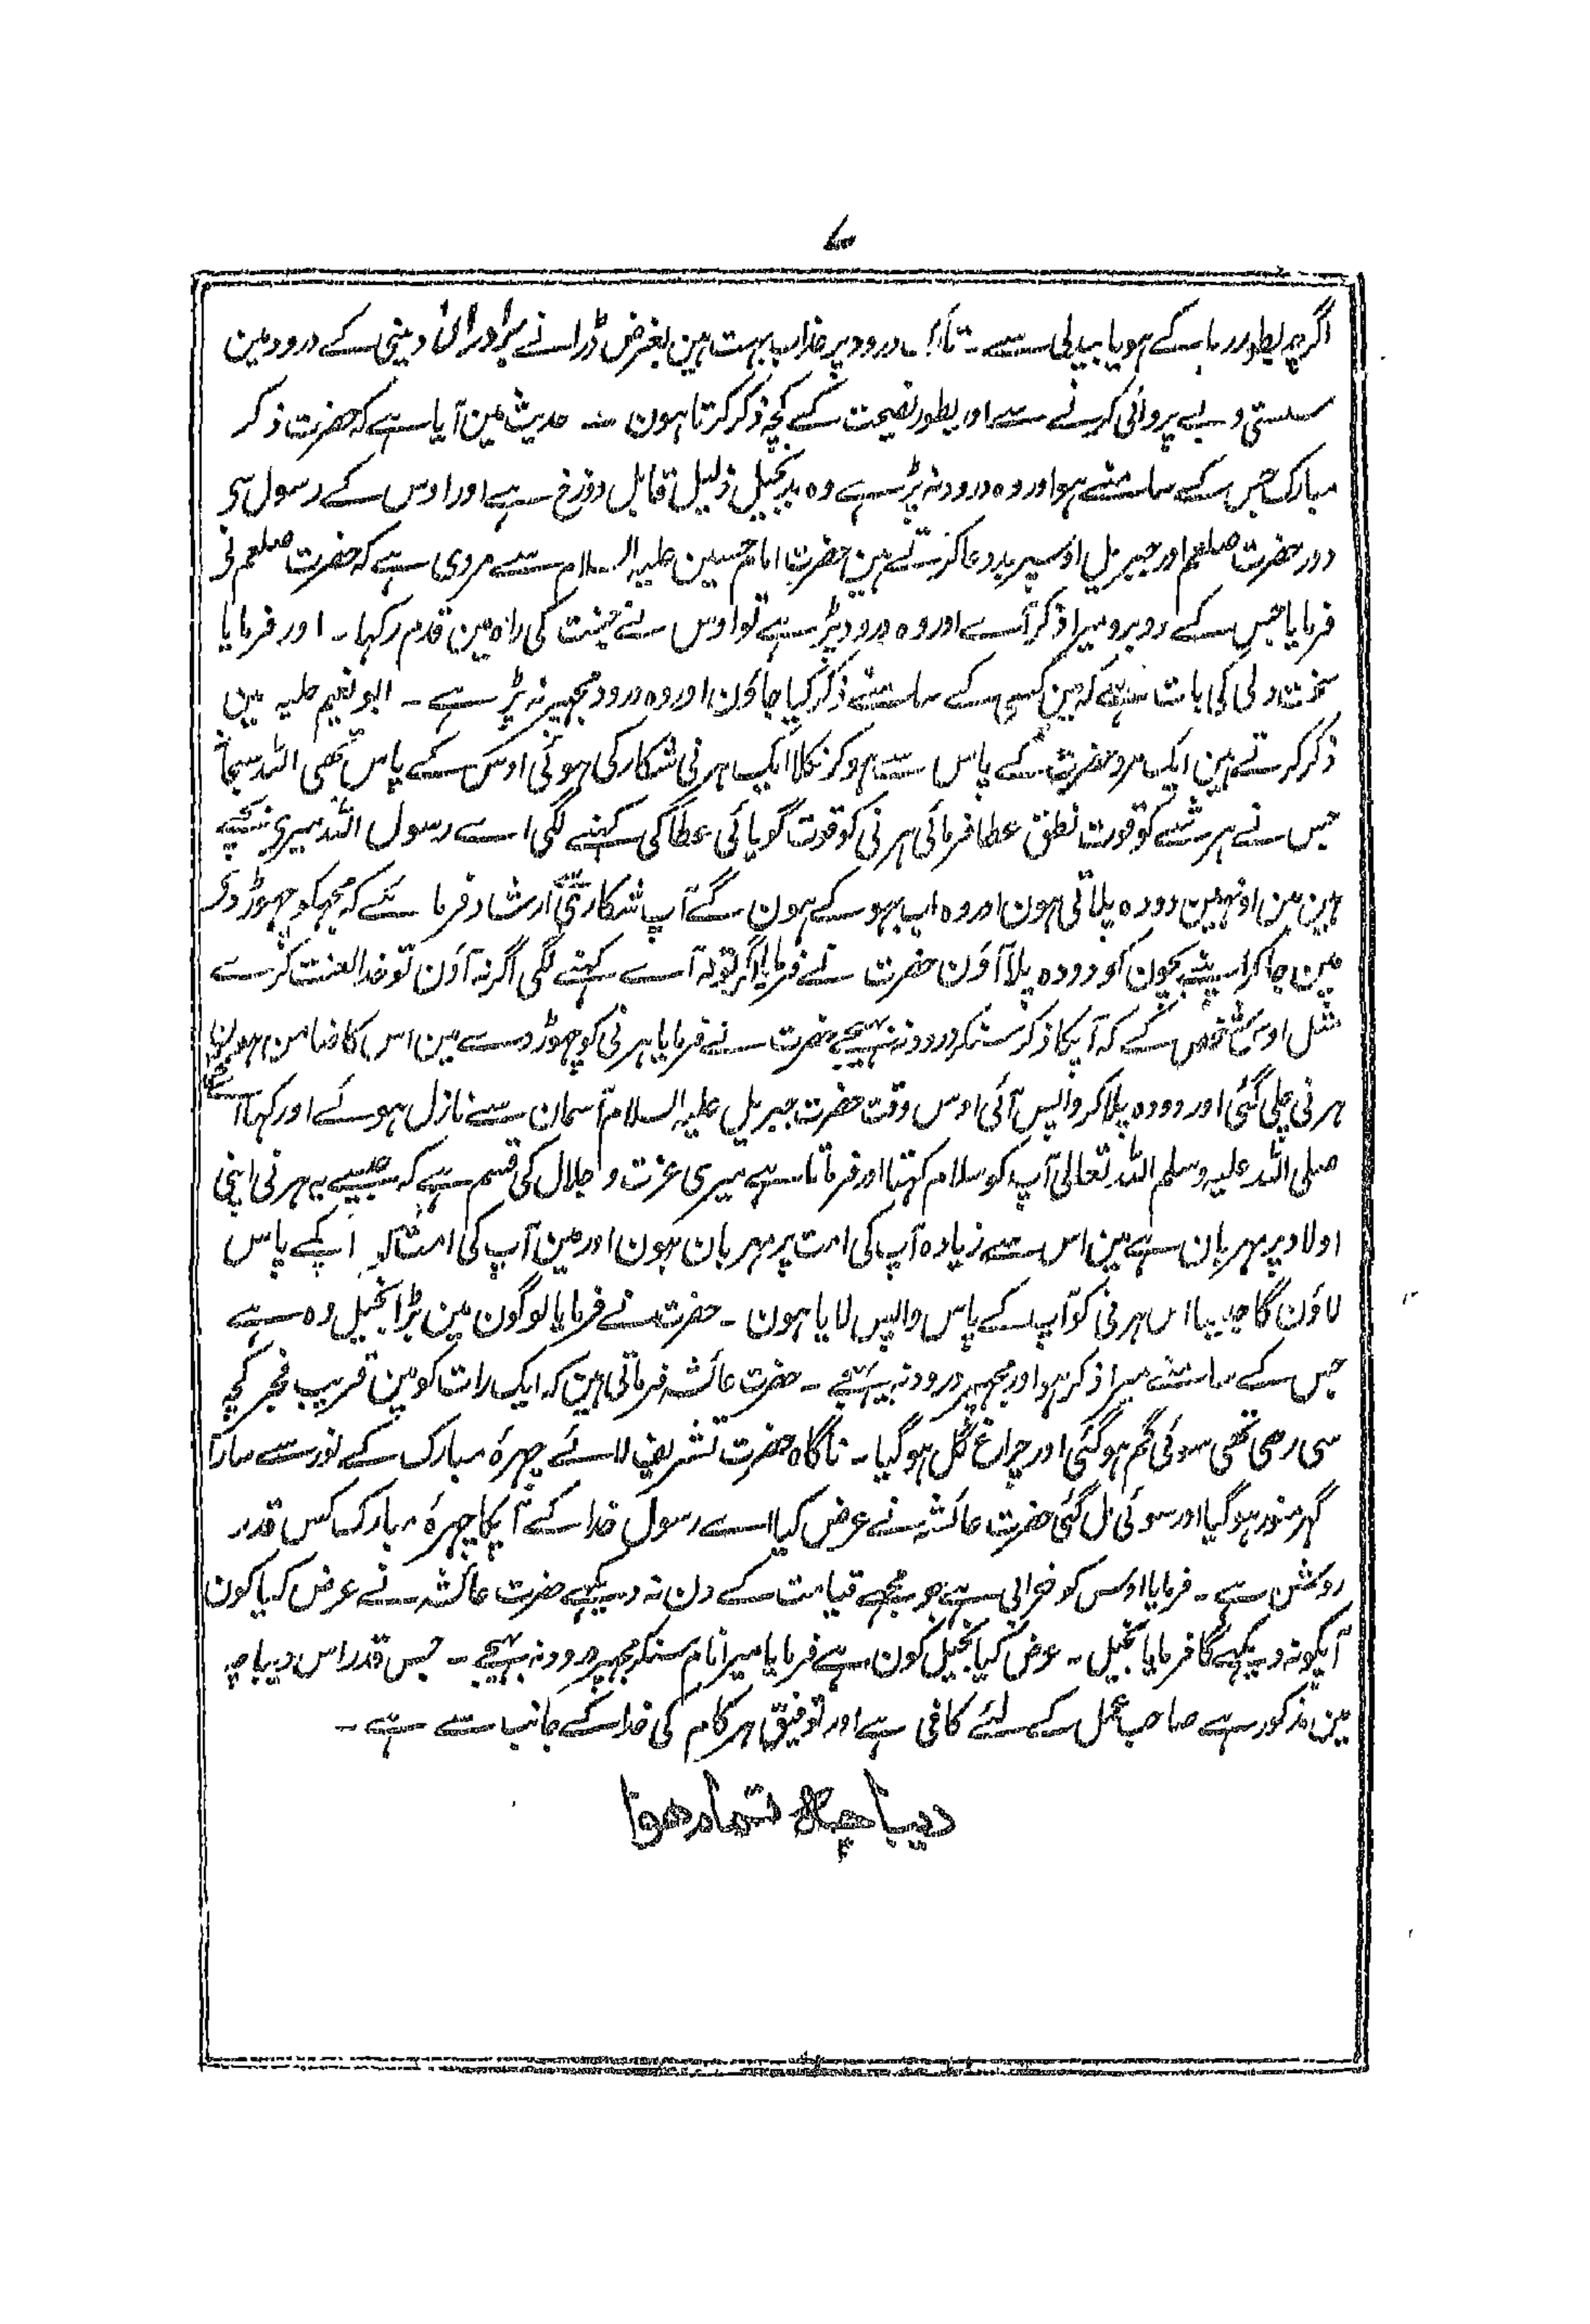 ۷
اگرچہ بطور کے ہو یا بیدلی سے ۔ درود پر عذاب بہت ہین بغرض ڈرانے برادران دینی کے درود مین
سستی و بے پروائی کرنے سے اور بطور نصیحت کے کچہ ذکر کرتا ہون ۔ حدیث مین آیا ہے کہ حضرت ذکر
مبارک جس کے سامنے ہو اور وہ درود نہ پڑہے وہ بد بخیل ذلیل قابل دوزخ ہے اور اوس کے رسول سے
دور حضرت صلعم اور جبریل اوسپر بددعا کرتے ہین حضرت امام حسین علیہ السلام سے مروی ہے کہ حضرت صلعم نی
فرمایا جس کے روبرو میرا ذکر آے اور وہ درود پڑہے تو اوس نے جنت کی راہ مین قدم رکہا ۔ اور فرمایا
سخت دلی کی بات ہے کہ مین کسی کے سامنے ذکر کیا جاؤن اور وہ درود مجہپر نہ پڑہے ۔ ابو نعیم حلیہ مین
ذکر کرتے ہین ایک مرد حضرت کے پاس سے ہو کر نکلا ایک ہرنی شکار کی ہوئی اوس کے پاس تھی اللہ سبحانہ
جس نے ہر شے کو قوت نطق عطا فرمائی ہرنی کو قوت گویائی عطا کی کہنے لگی اے رسول اللہ میری بچے
ہین مین اونہین دودہ پلاتی ہون اور وہ اب بہوکے ہون گے آپ شکاری سے ارشاد فرمائے کہ مجہکو چہوڑ دے
مین جا کر اپنے بچون کو دودہ پلا آؤن حضرت نے فرمایا اگر تو نہ آے کہنے لگی اگر نہ آؤن تو خدا لعنت کرے
مثل اوس شخص کے کہ آپکا ذکر سنکر درود نہ بہیجے حضرت نے فرمایا ہرنی کو چہوڑ دے مین اس کا ضامن ہون
ہرنی چلی گئی اور دودہ پلا کر واپس آئی اوس وقت حضرت جبریل علیہ السلام آسمان سے نازل ہوئے اور کہا اے
صلی اللہ علیہ وسلم اللہ تعالی آپ کو سلام کہتا اور فرماتا ہے میری عزت و جلال کی قسم ہے کہ جیسے یہ ہرنی اپنی
اولاد پر مہربان ہے مین اس سے زیادہ آپ کی امت پر مہربان ہون اور مین آپ کی امت کو آپکے پاس
لاؤن گا جیسا اس ہرنی کو آپ کے پاس واپس لایا ہون ۔ حضرت نے فرمایا لوگون مین بڑا بخیل وہ ہے
جس کے سامنے میرا ذکر ہو اور مجہپر درود نہ بہیجے ۔ حضرت عائشہ فرماتی ہین کہ ایک رات کو مین قریب فجر کچہ
سی رہی تھی سوئی گم ہو گئی اور چراغ گل ہو گیا ۔ ناگاہ حضرت تشریف لائے چہرۂ مبارک کے نور سے سارا
گہر منور ہو گیا اور سوئی مل گئی حضرت عائشہ نے عرض کیا اے رسول خدا کے آپکا چہرۂ مبارک کس قدر
روشن ہے ۔ فرمایا اوس کو خرابی ہے جو مجہے قیامت کے دن نہ دیکہے حضرت عائشہ نے عرض کیا کون
آپکو نہ دیکہے گا فرمایا بخیل ۔ عرض کیا بخیل کون ہے فرمایا میرا نام سنکر مجہپر درود نہ بہیجے ۔ جس قدر اس دیباچہ
مین مذکور ہے صاحب عمل کے لئے کافی ہے اور توفیق ہر کام کی خدا کے جانب سے ہے ۔
دیباچہ تمام ہوا